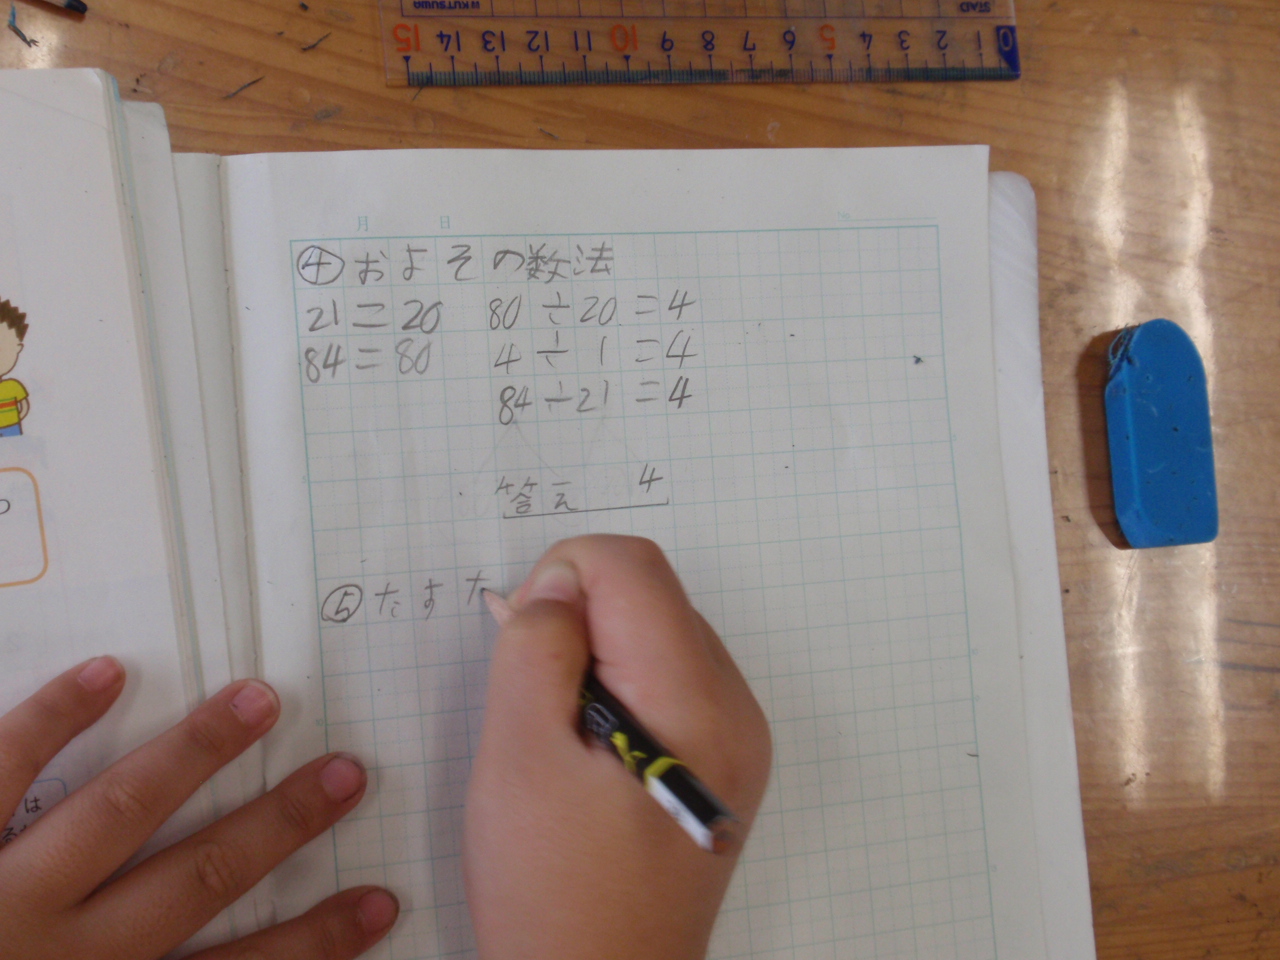 KUTSUWA STAD
15 14 13 12 11 10 9 8 7 6 5 4 3 2 1 0
月 日
④およその数法
21=20 80÷20=4
84=80 4÷1=4
84÷21=4
答え 4
⑤たすた
は